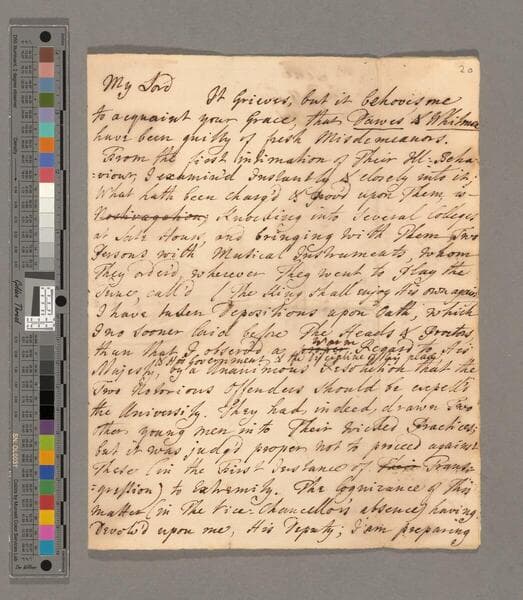 20
My Lord It Grieves, but it behoves me
to acquaint your Grace, that Dawes & Whitmore
have been guilty of fresh Misdemeanors.
From the first Intimation of Their Ill-Beha-
=viour, I examin'd Instantly & closely into it;
What hath been charg'd & prov'd upon Them, is
Knocking into Several Colleges
at Late Hours, and bringing with Them Two
Persons with Musical Instruments, whom
They order'd, wherever They went to Play the
Tune, call'd (The King shall enjoy His own again
I have taken Depositions upon Oath, which
I no sooner laid before The Heads & Proctors,
than that I observ'd a warm Regard to His
Majesty, & His Government, & the Discipline of this place
by a Unanimous Resolution that the
Two Notorious Offenders should be expell'd
the University. They had, indeed, drawn Two
other young men into Their Wicked Practices;
but it was judg'd proper not to proceed against
These (in the First Instance of Their Trans-
=gression) to Extremity. The Cognizance of This
matter (in the Vice-Chancellors absence) having
Devolv'd upon me, His Deputy; I am preparing